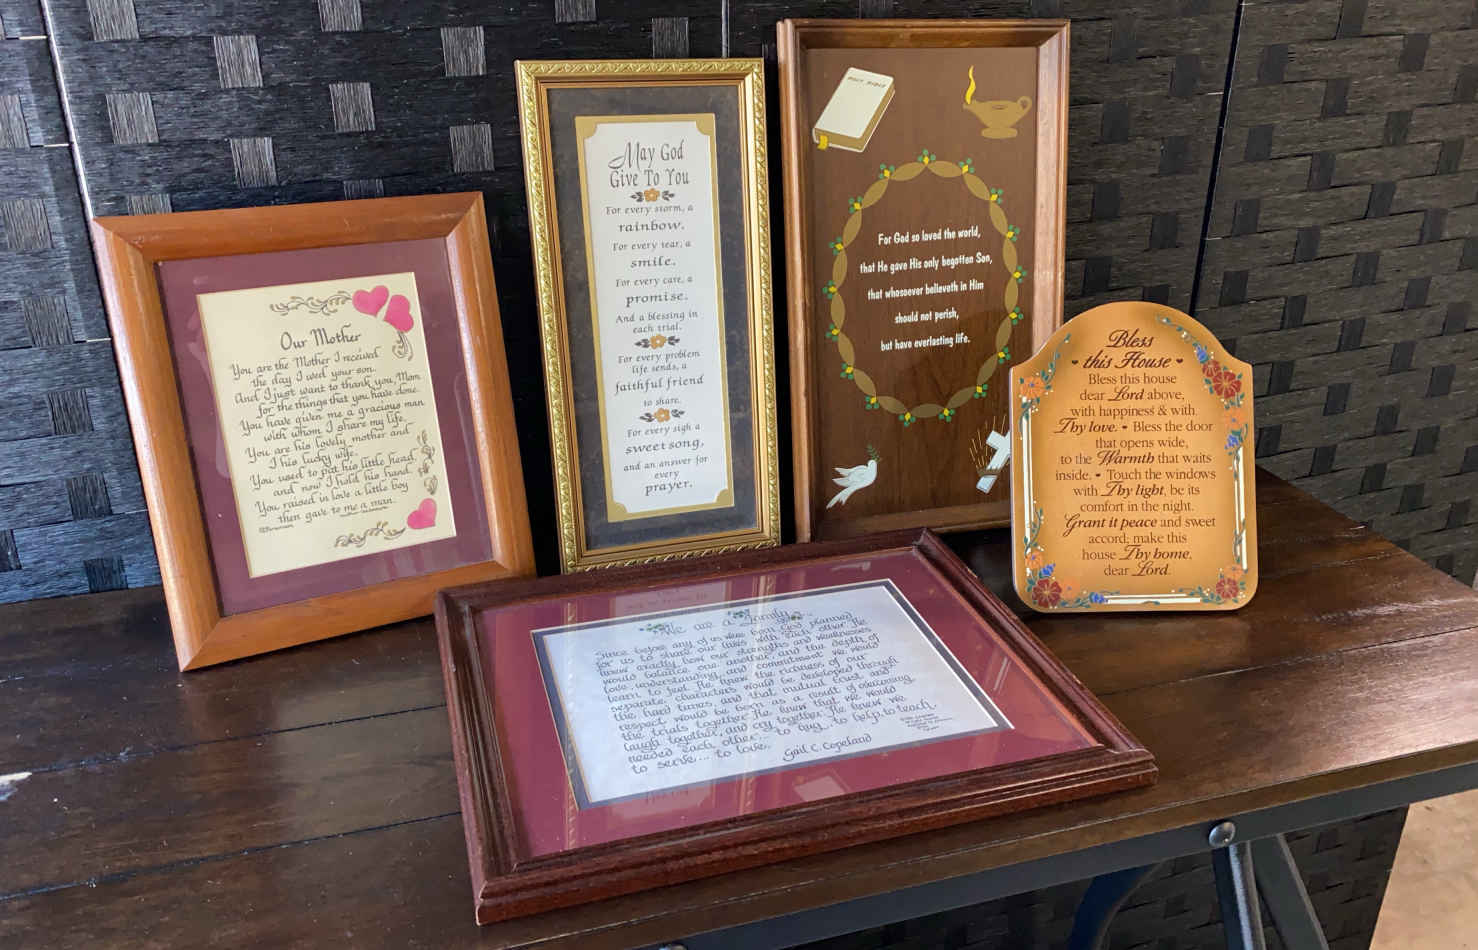 Our Mother
You are the Mother I received
the day I wed your son.
And I just want to thank you, Mom
for the things that you have done.
You have given me a gracious man
with whom I share my life.
You are his lovely mother and
I his lucky wife.
You used to pat his little head
and now I hold his hand.
You raised in love a little boy
then gave to me a man.
May God
Give To You
For every storm, a
rainbow.
For every tear, a
smile.
For every care, a
promise.
And a blessing in
each trial.
For every problem
life sends, a
faithful friend
to share.
For every sigh a
sweet song,
and an answer for
every
prayer.
HOLY BIBLE
For God so loved the world,
that He gave His only begotten Son,
that whosoever believeth in Him
should not perish,
but have everlasting life.
Bless
this House
Bless this house
dear Lord above,
with happiness & with
Thy love. • Bless the door
that opens wide,
to the Warmth that waits
inside. • Touch the windows
with Thy light, be its
comfort in the night.
Grant it peace and sweet
accord; make this
house Thy home,
dear Lord.
We are a Family...
Since before any of us were born God planned
for us to share our lives with each other. He
knew exactly how our strengths and weaknesses
would balance one another, and the depth of
love, understanding, and commitment we would
learn to feel. He knew the richness of our
separate characters would be developed through
the hard times, and that mutual trust and
respect would be born as a result of overcoming
the trials together. He knew that we would
laugh together, and cry together. He knew we
needed each other... to hug... to help, to teach,
to serve... to love.
Gail C. Copeland